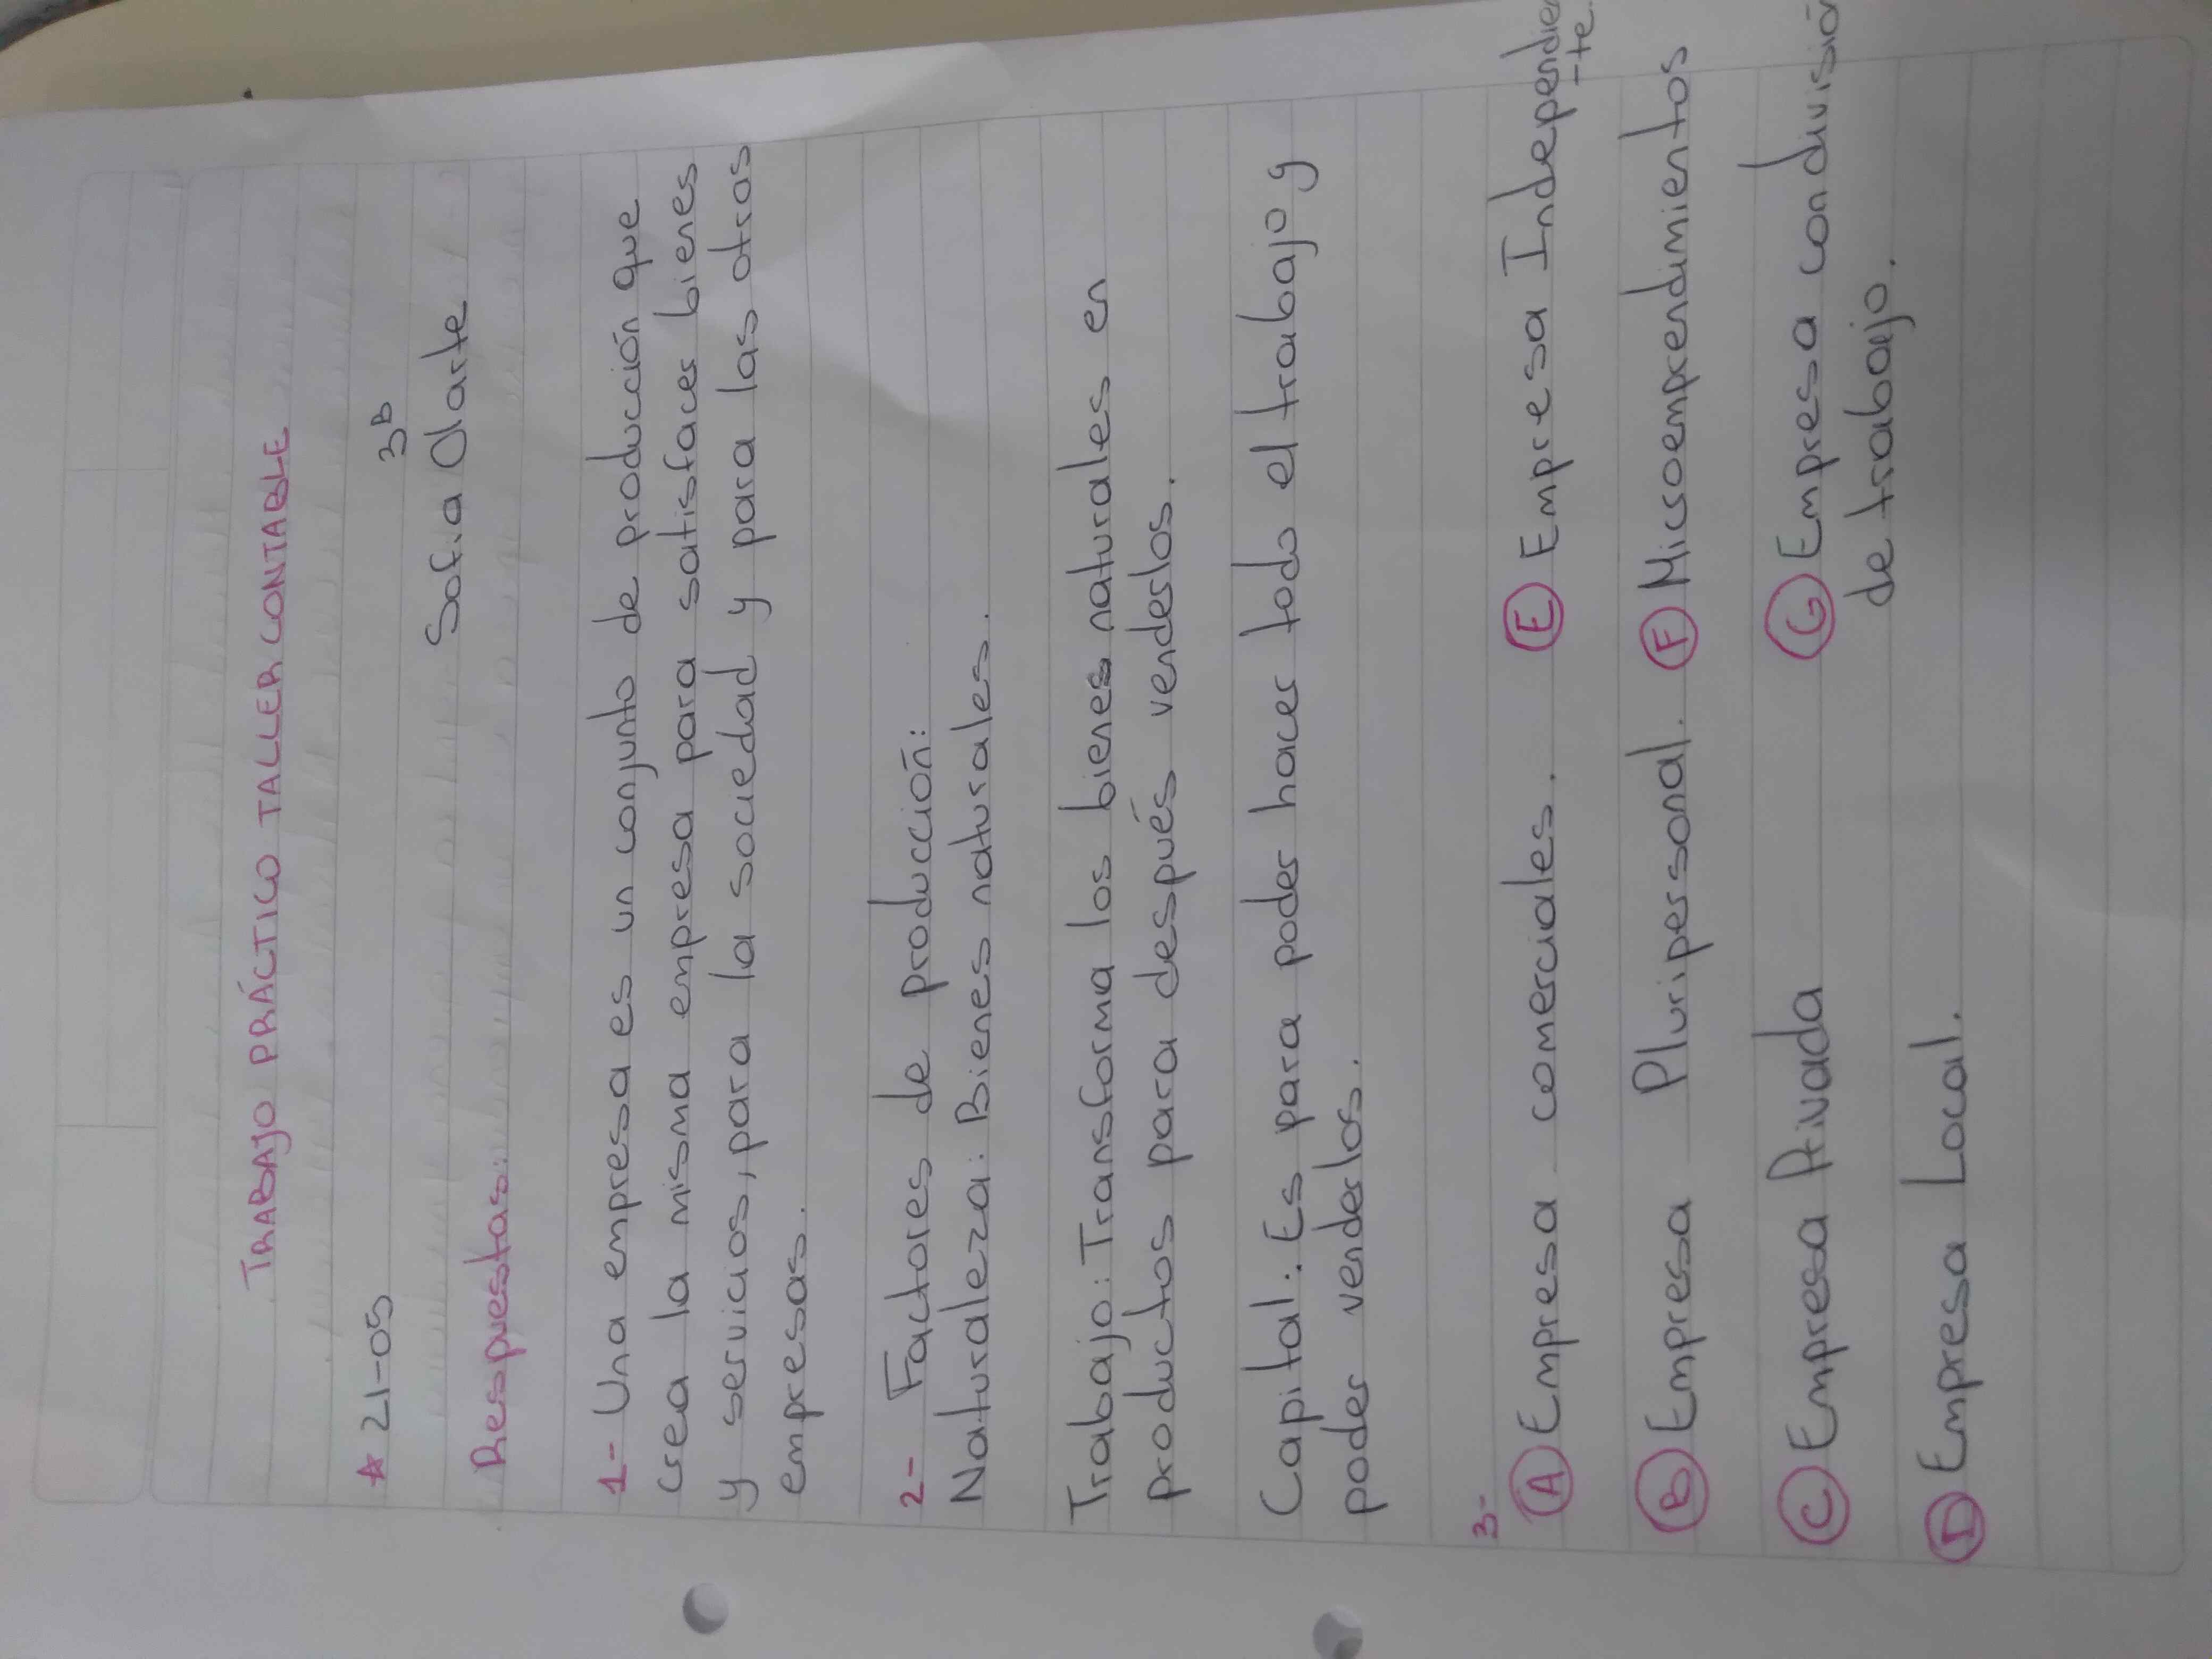 TRABAJO PRÁCTICO TALLER CONTABLE
★ 21-05 3B
Sofia Olarte
Respuestas:
1- Una empresa es un conjunto de producción que
crea la misma empresa para satisfacer bienes
y servicios, para la sociedad y para las otras
empresas.
2- Factores de producción:
Naturaleza: Bienes naturales.
Trabajo: Transforma los bienes naturales en
productos para después venderlos.
Capital: Es para poder hacer todo el trabajo y
poder venderlos.
3-
A Empresa comerciales. E Empresa Independien
-te.
B Empresa Pluripersonal. F Microemprendimientos
C Empresa Privada G Empresa con división
de trabajo.
D Empresa Local.